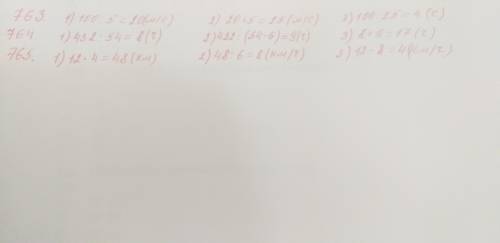 763. 1) 100 : 5 = 20 (м/с) 2) 20 + 5 = 25 (м/с) 3) 100 : 25 = 4 (с)
764 1) 432 : 54 = 8 (ч) 2) 432 : (54-6) = 9 (ч) 3) 8 + 9 = 17 (ч)
765. 1) 12 · 4 = 48 (км) 2) 48 : 6 = 8 (км/ч) 3) 12 - 8 = 4 (км/ч)